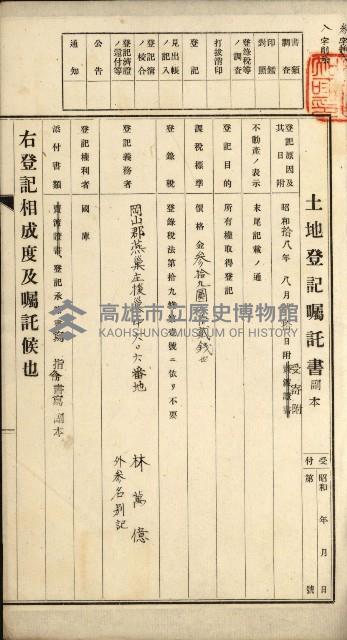 土地登記嘱託書 副本
受付
昭和 年 月 日
第 號
登記原因及其ノ日附 昭和拾八年八月 日附 受寄附
不動産ノ表示 末尾記載ノ通
登記目的 所有權取得登記
課税標準 價格 金參拾九圓 貳錢也
登錄税 登錄税法第拾九條 號ニ依リ不要
登記義務者 岡山郡燕巢庄援巢 六〇六番地
林萬億
外參名別記
登記權利者 國庫
添付書類 登記承 寫 指令書寫 副本
右登記相成度及嘱託候也
書類調査
印鑑對照
登錄税等ノ調査
打拔消印
登記
見出帳ノ記入
登記簿ノ校合
登記濟證ノ還付等
公告
通知
高雄市立歷史博物館
KAOHSIUNG MUSEUM OF HISTORY